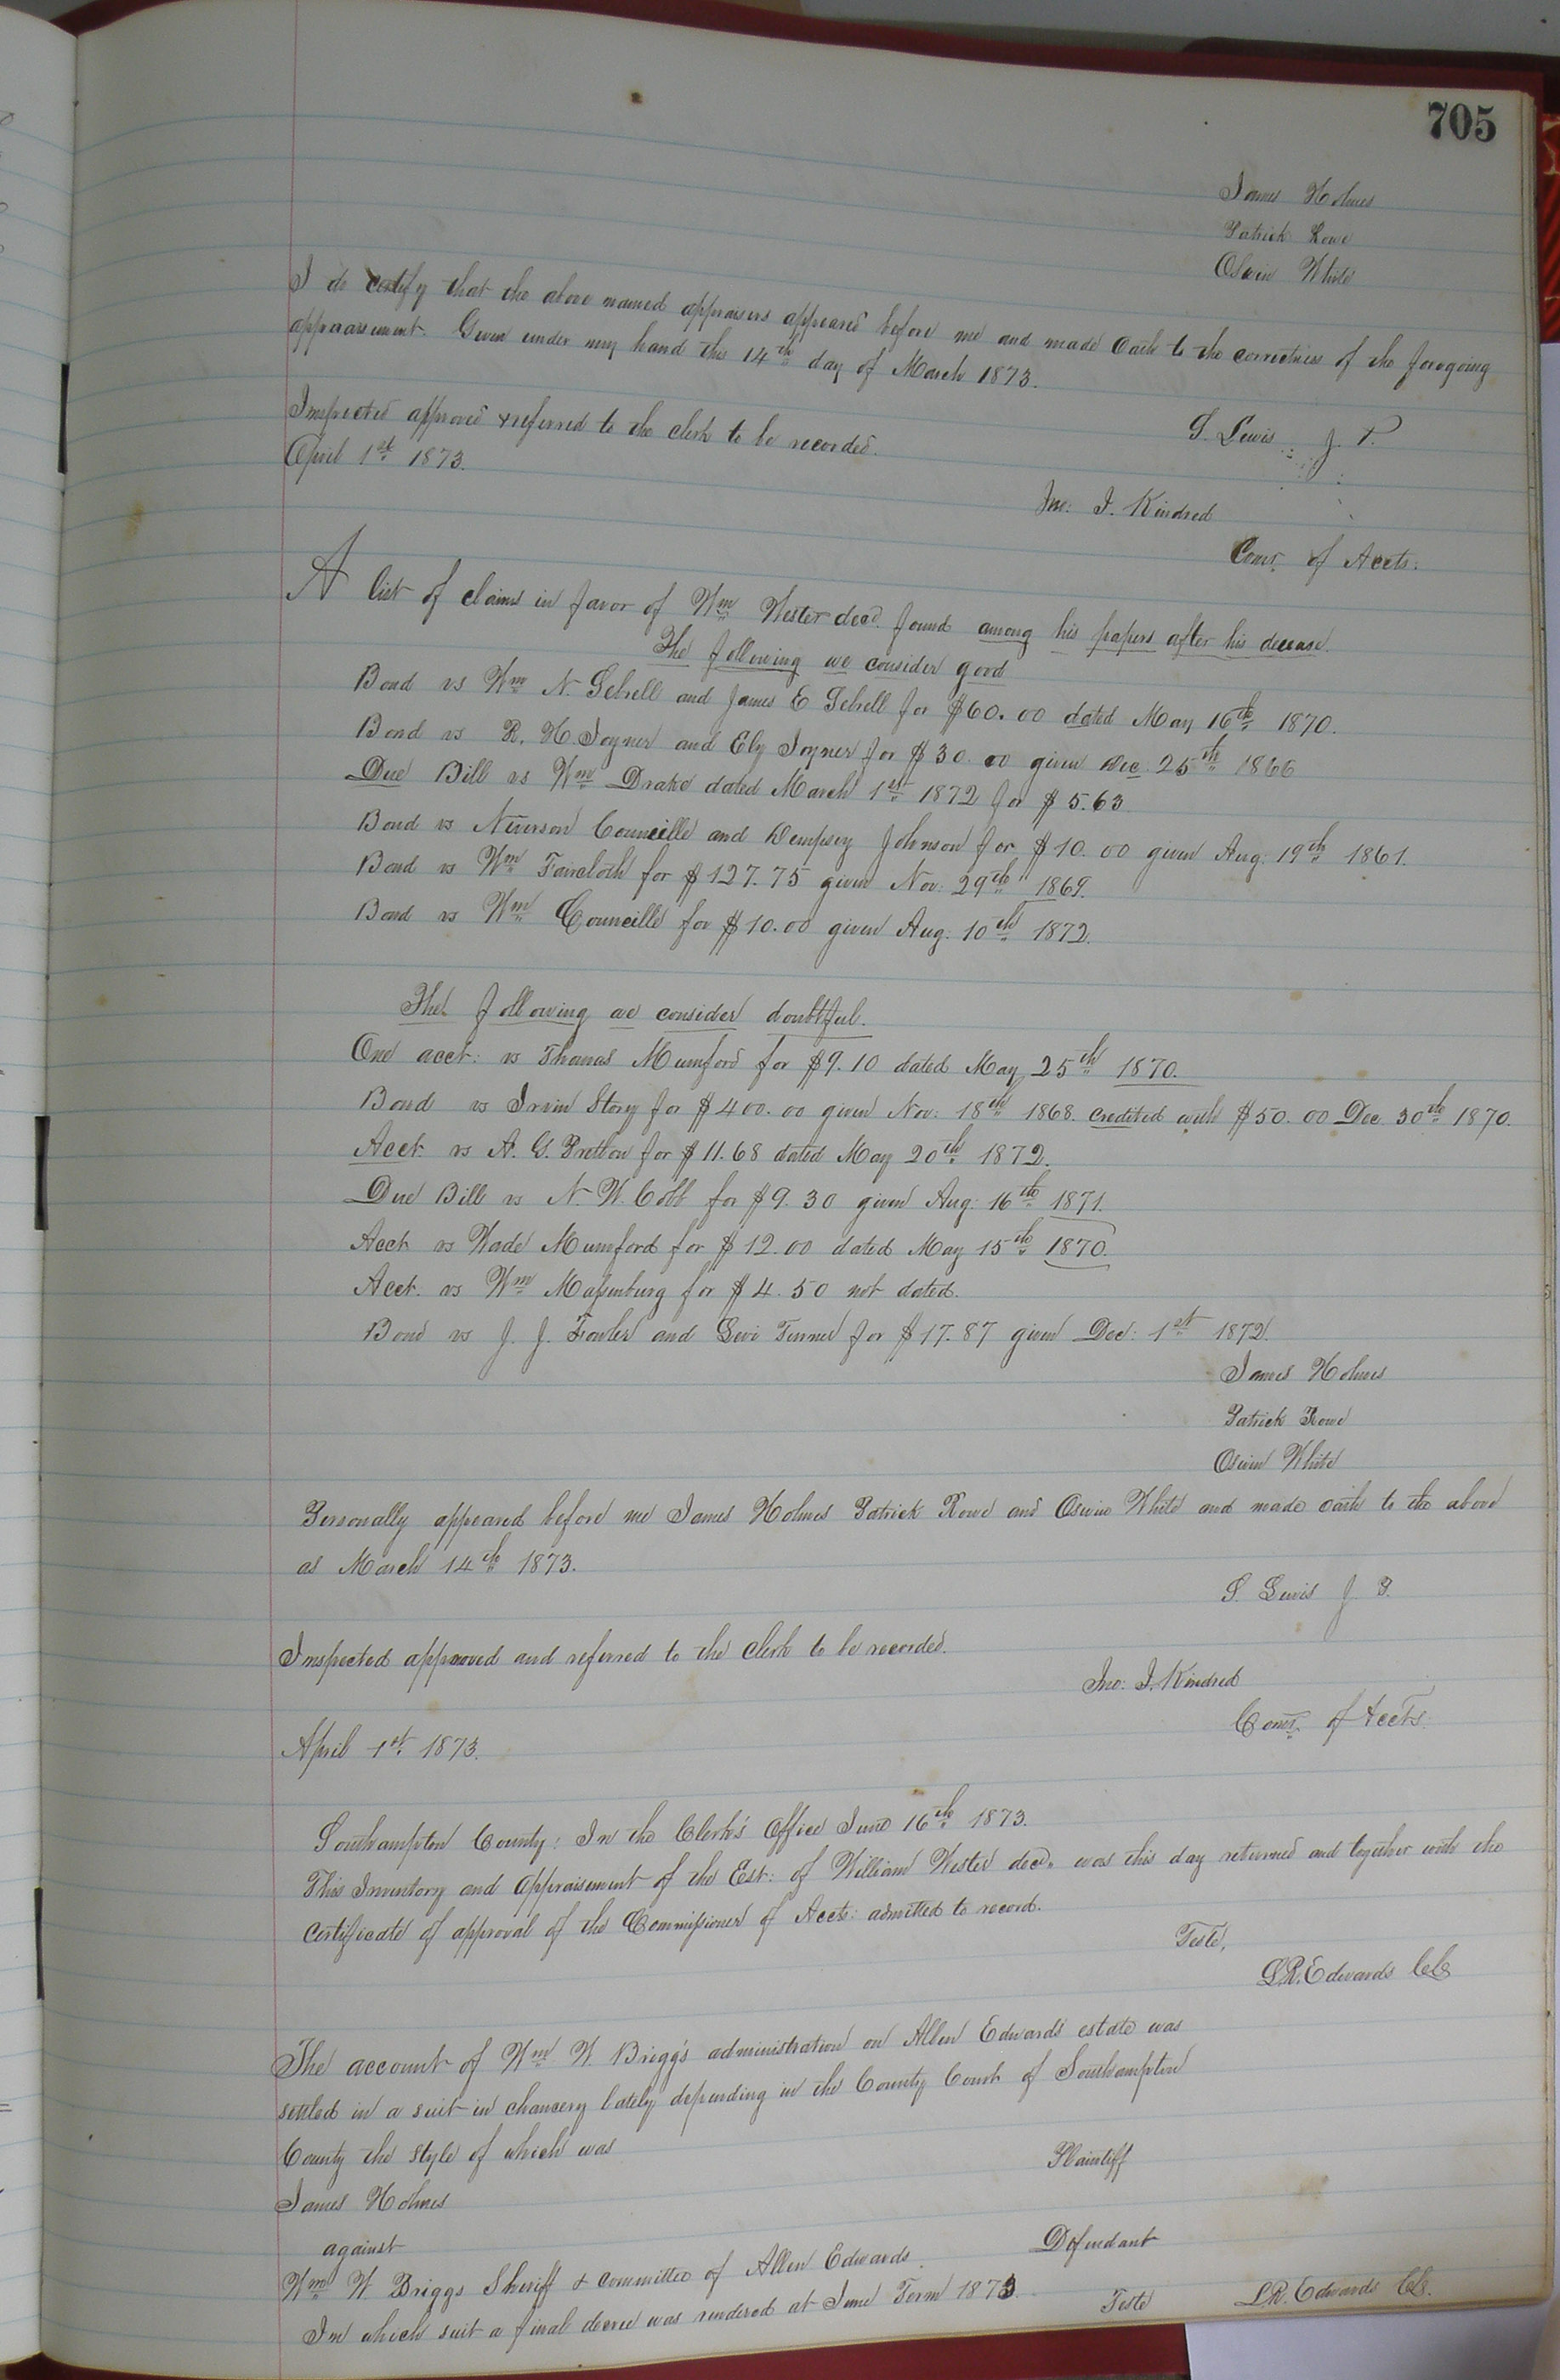 705
James Holmes
Patrick Rowe
Oswin White
I do certify that the above named appraisers appeared before me and made oath to the correctness of the foregoing
appraisement. Given under my hand this 14th day of March 1873.
S. Lewis J. P.
Inspected approved & referred to the clerk to be recorded.
April 1st 1873.
Jno: J. Kindred
Comr. of Accts.
A list of claims in favor of Wm Wester decd. found among his papers after his decease.
The following we consider good
Bond vs Wm N. Sebrell and James E Sebrell for $60.00 dated May 16th 1870.
Bond vs R. H. Joyner and Ely Joyner for $30.00 given Dec. 25th 1866
Due Bill vs Wm Drake dated March 1st 1872 for $5.63
Bond vs Councille and Dempsey Johnson for $10.00 given Aug. 19th 1861.
Bond vs Wm Faircloth for $127.75 given Nov: 29th 1869.
Bond vs Wm Councille for $10.00 given Aug. 10th 1872.
The following we consider doubtful.
One acct: vs Thomas Mumford for $9.10 dated May 25th 1870.
Bond vs Irvin Story for $400.00 given Nov: 18th 1868. credited with $50.00 Dec. 30th 1870.
Acct. vs A. G. for $11.68 dated May 20th 1872.
Due Bill vs N. W. Cobb for $9.30 given Aug: 16th 1871.
Acct vs Wade Mumford for $12.00 dated May 15th 1870.
Acct. vs Wm Massenburg for $4.50 not dated.
Bond vs J. J. Fowler and Levi Turner for $17.87 given Dec: 1st 1872.
James Holmes
Patrick Rowe
Oswin White
Personally appeared before me James Holmes Patrick Rowe and Oswin White and made oath to the above
as March 14th 1873.
S. Lewis J. P.
Inspected approved and referred to the Clerk to be recorded.
Jno: J. Kindred
Comr. of Accts.
April 1st 1873.
Southampton County: In the Clerk's Office June 16th 1873.
This Inventory and Appraisement of the Est: of William Wester decd. was this day returned and together with the
certificate of approval of the Commissioner of Accts: admitted to record.
Teste,
L.R. Edwards CC
The account of Wm W. Brigg's administration on Allen Edwards' estate was
settled in a suit in chancery lately depending in the County Court of Southampton
County the style of which was
James Holmes Plaintiff
against
Wm W. Briggs Sheriff & committee of Allen Edwards. Defendant
In which suit a final decree was rendered at June Term 1873. Teste L.R. Edwards Clk.